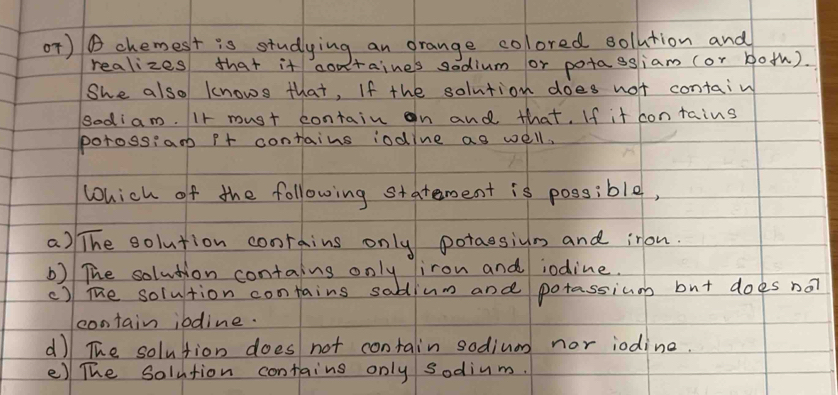 07) A chemest is studying an orange colored solution and
realizes that it containes sodium or potassiam (or both).
She also knows that, If the solution does not contain
sodiam. It must contain on and that. If it contains
potossiam it contains iodine as well.
Which of the following statement is possible,
a) The solution contains only potassium and iron.
b) The solution contains only iron and iodine.
c) The solution contains sadium and potassium but does not
contain iodine.
d) The solution does not contain sodium nor iodine.
e) The Solution contains only sodium.